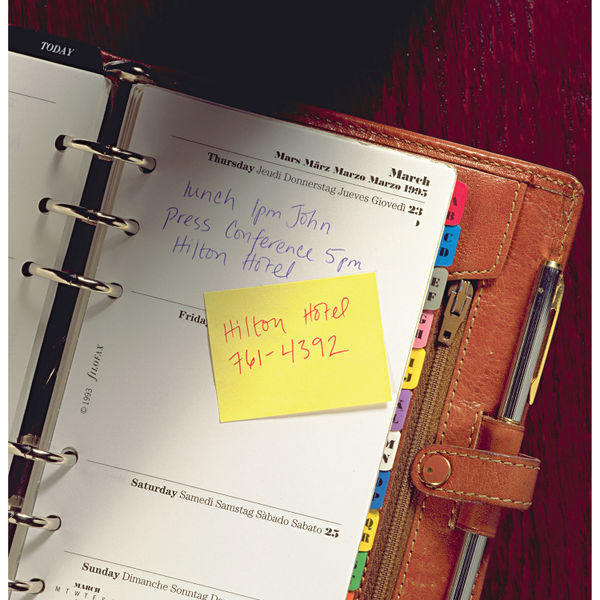 TODAY
March
Mars März Marzo Marzo 1995
Thursday Jeudi Donnerstag Jueves Giovedì 23
lunch 1pm John
Press Conference 5pm
Hilton Hotel
Friday
Hilton Hotel
761-4392
© 1993 filofax
Saturday Samedi Samstag Sàbado Sabato 25
Sunday Dimanche Sonntag Do
MARCH
M T W T F S
A B
C D
E F
G H
I J
K L
M N
O P
Q R
S T